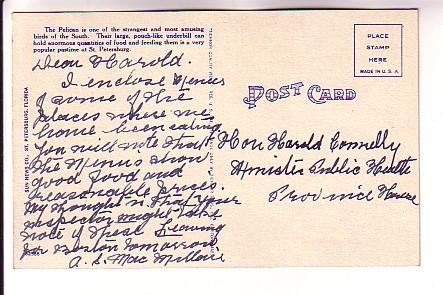 The Pelican is one of the strangest and most amusing
birds of the South. Their large, pouch-like underbill can
hold enormous quantities of food and feeding them is a very
popular pastime at St. Petersburg.
Dear Harold.
I enclose Menus
of some of the
places where we
have been eating
You will note that
the Menus show
good food and
reasonable prices.
My thought is that your
inspector might take
note of these Leaving
for Boston tomorrow
A. S. MacMillan
SUN NEWS CO., ST. PETERSBURG, FLORIDA
POST CARD
PLACE
STAMP
HERE
MADE IN U.S.A
Hon Harold Connolly
Minister Public Health
Province House